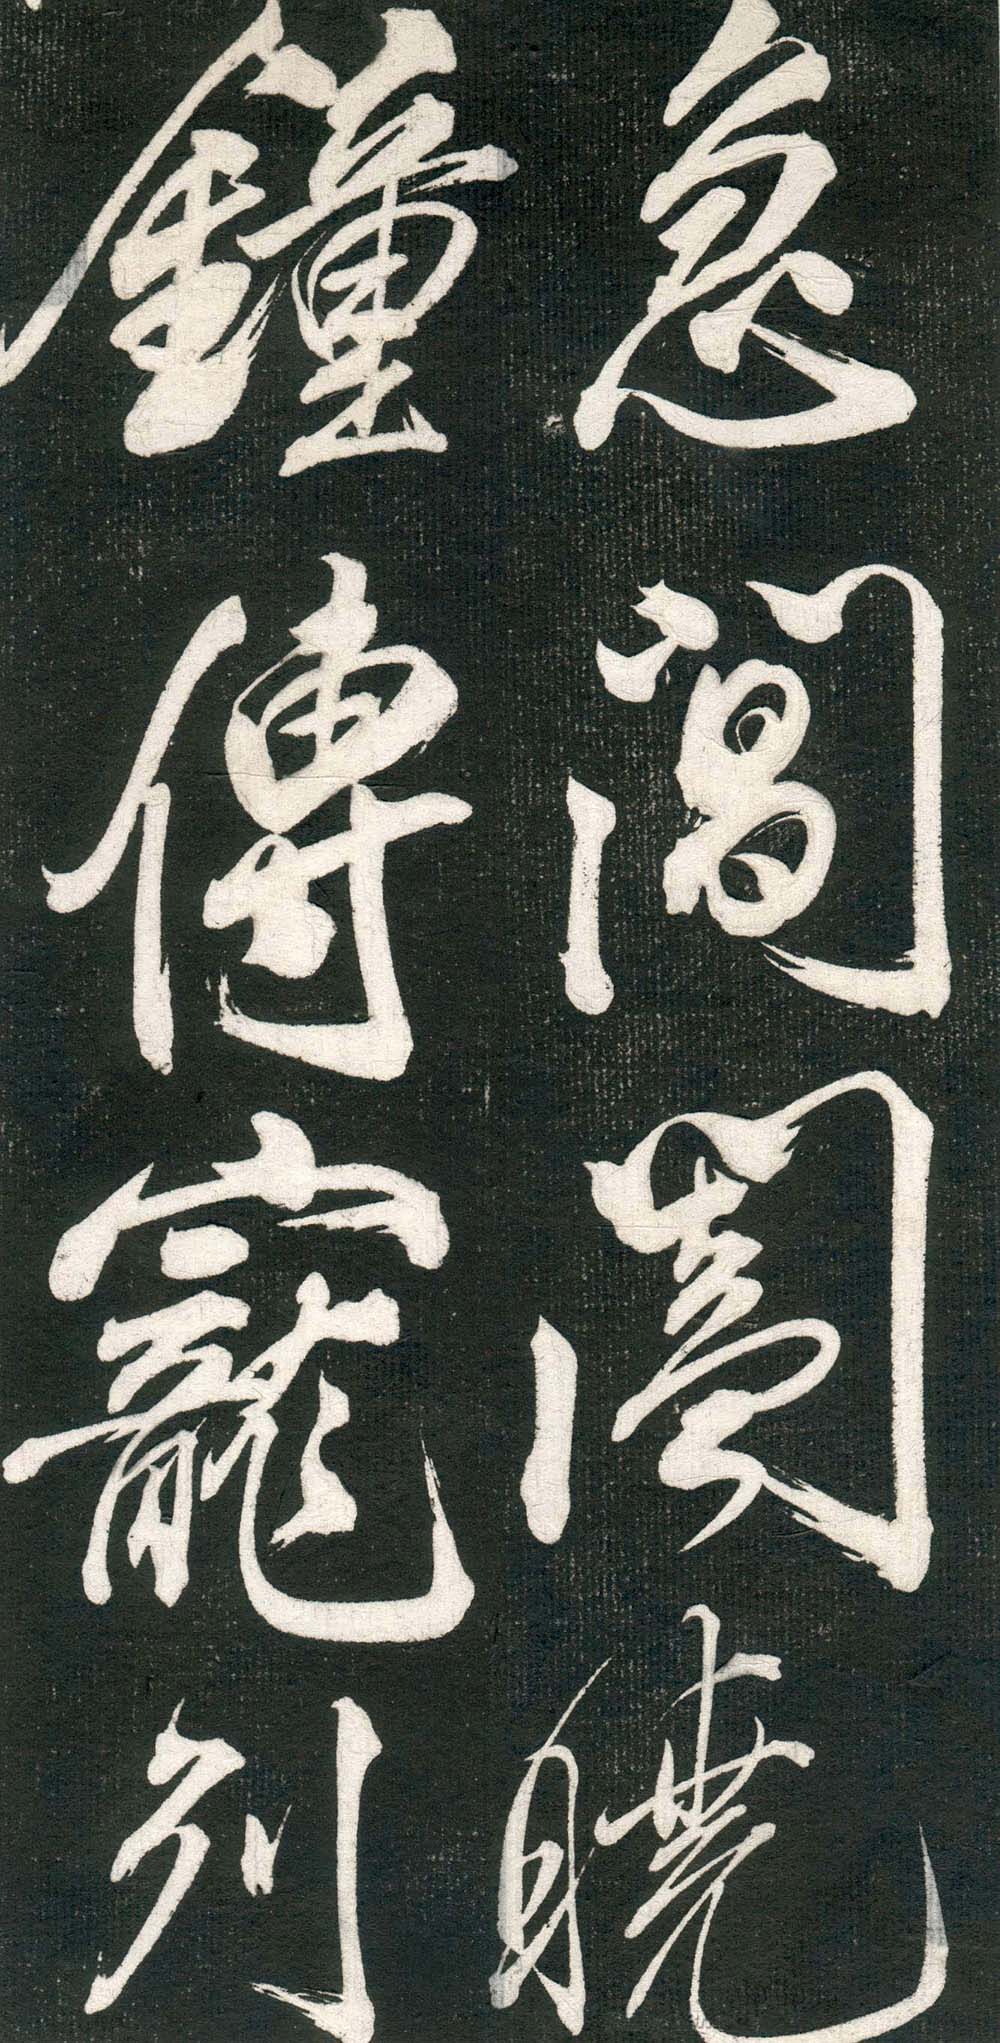 急閶闔曉
鐘傳寵列